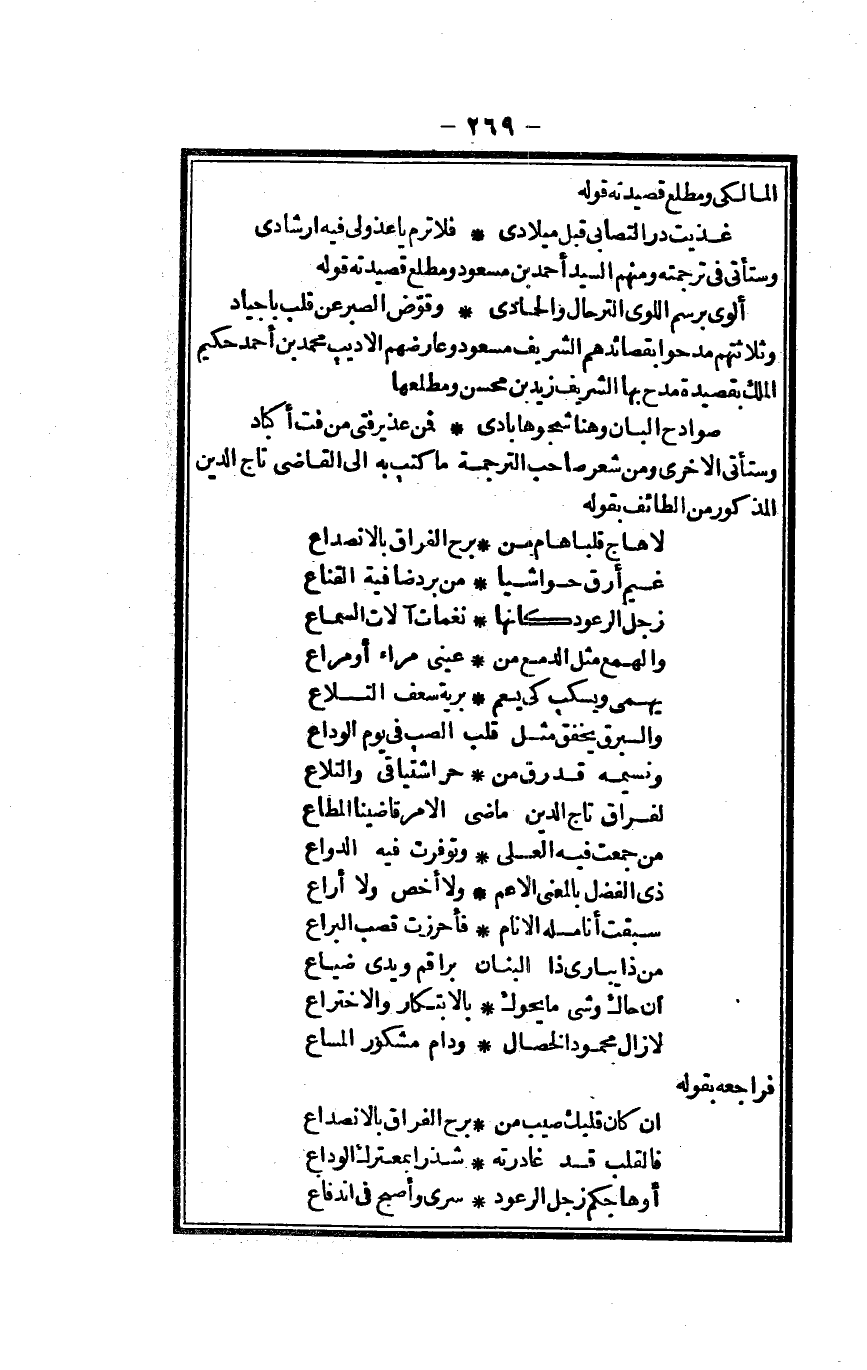 - ٢٦٩ -
المالكى ومطلع قصيدته قوله
غذيت در التصابى قبل ميلادى * فلا ترم يا عذولى فيه ارشادى
وستأتى فى ترجمته ومنهم السيد أحمد بن مسعود ومطلع قصيدته قوله
ألوى برسم اللوى الترحال والحادى * وقوّض الصبر عن قلب باجياد
وثلاثتهم مدحوا بقصائدهم الشريف مسعود وعارضهم الاديب محمد بن أحمد حكيم
الملك بقصيدة مدح بها الشريف زيد بن محسن ومطلعها
صوادح البان وهنا شجوها بادى * فمن عذير فتى من فت أكباد
وستأتى الاخرى ومن شعر صاحب الترجمة ما كتب به الى القاضى تاج الدين
المذكور من الطائف بقوله
لا هاج قلبا هام من * برح الفراق بالانصداع
غيم أرق حواشيا * من برد ضافية القناع
زجل الرعود كانها * نغمات آلات السماع
والهمع مثل الدمع من * عينى مراء أو مراع
يهمى ويسكب كى يعم * برية سعف التلاع
والبرق يخفق مثل قلب الصب فى يوم الوداع
ونسيمه قد رق من * حر اشتياقى والتلاع
لفراق تاج الدين ماضى الامر قاضينا المطاع
من جمعت فيه العلى * وتوفرت فيه الدواع
ذى الفضل بالمعنى الاعم * ولا أخص ولا أراع
سبقت أنامله الانام * فأحرزت قصب البراع
من ذا يبارى ذا البنان براقم ويدى ضياع
ان حاك وشى ما يحوك * بالابتكار والاختراع
لازال محمود الخصال * ودام مشكور المساع
فراجعه بقوله
ان كان قلبك صيب من * برح الفراق بالانصداع
فالقلب قد غادرته * شذرا بمعترك الوداع
أو هاجكم زجل الرعود * سرى وأصبح فى اندفاع